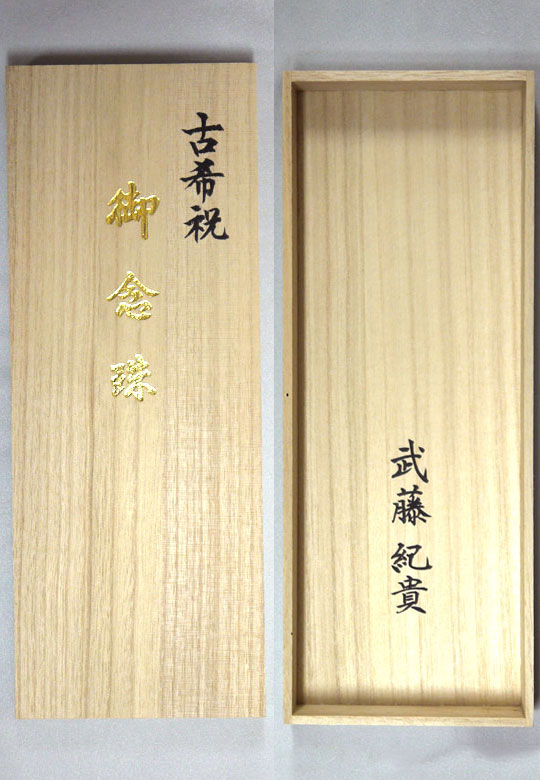 古希祝
御念珠
武藤紀貴